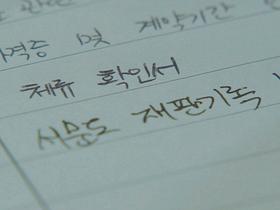 격증 및 계약기간
체류 확인서
서문도 재판기록